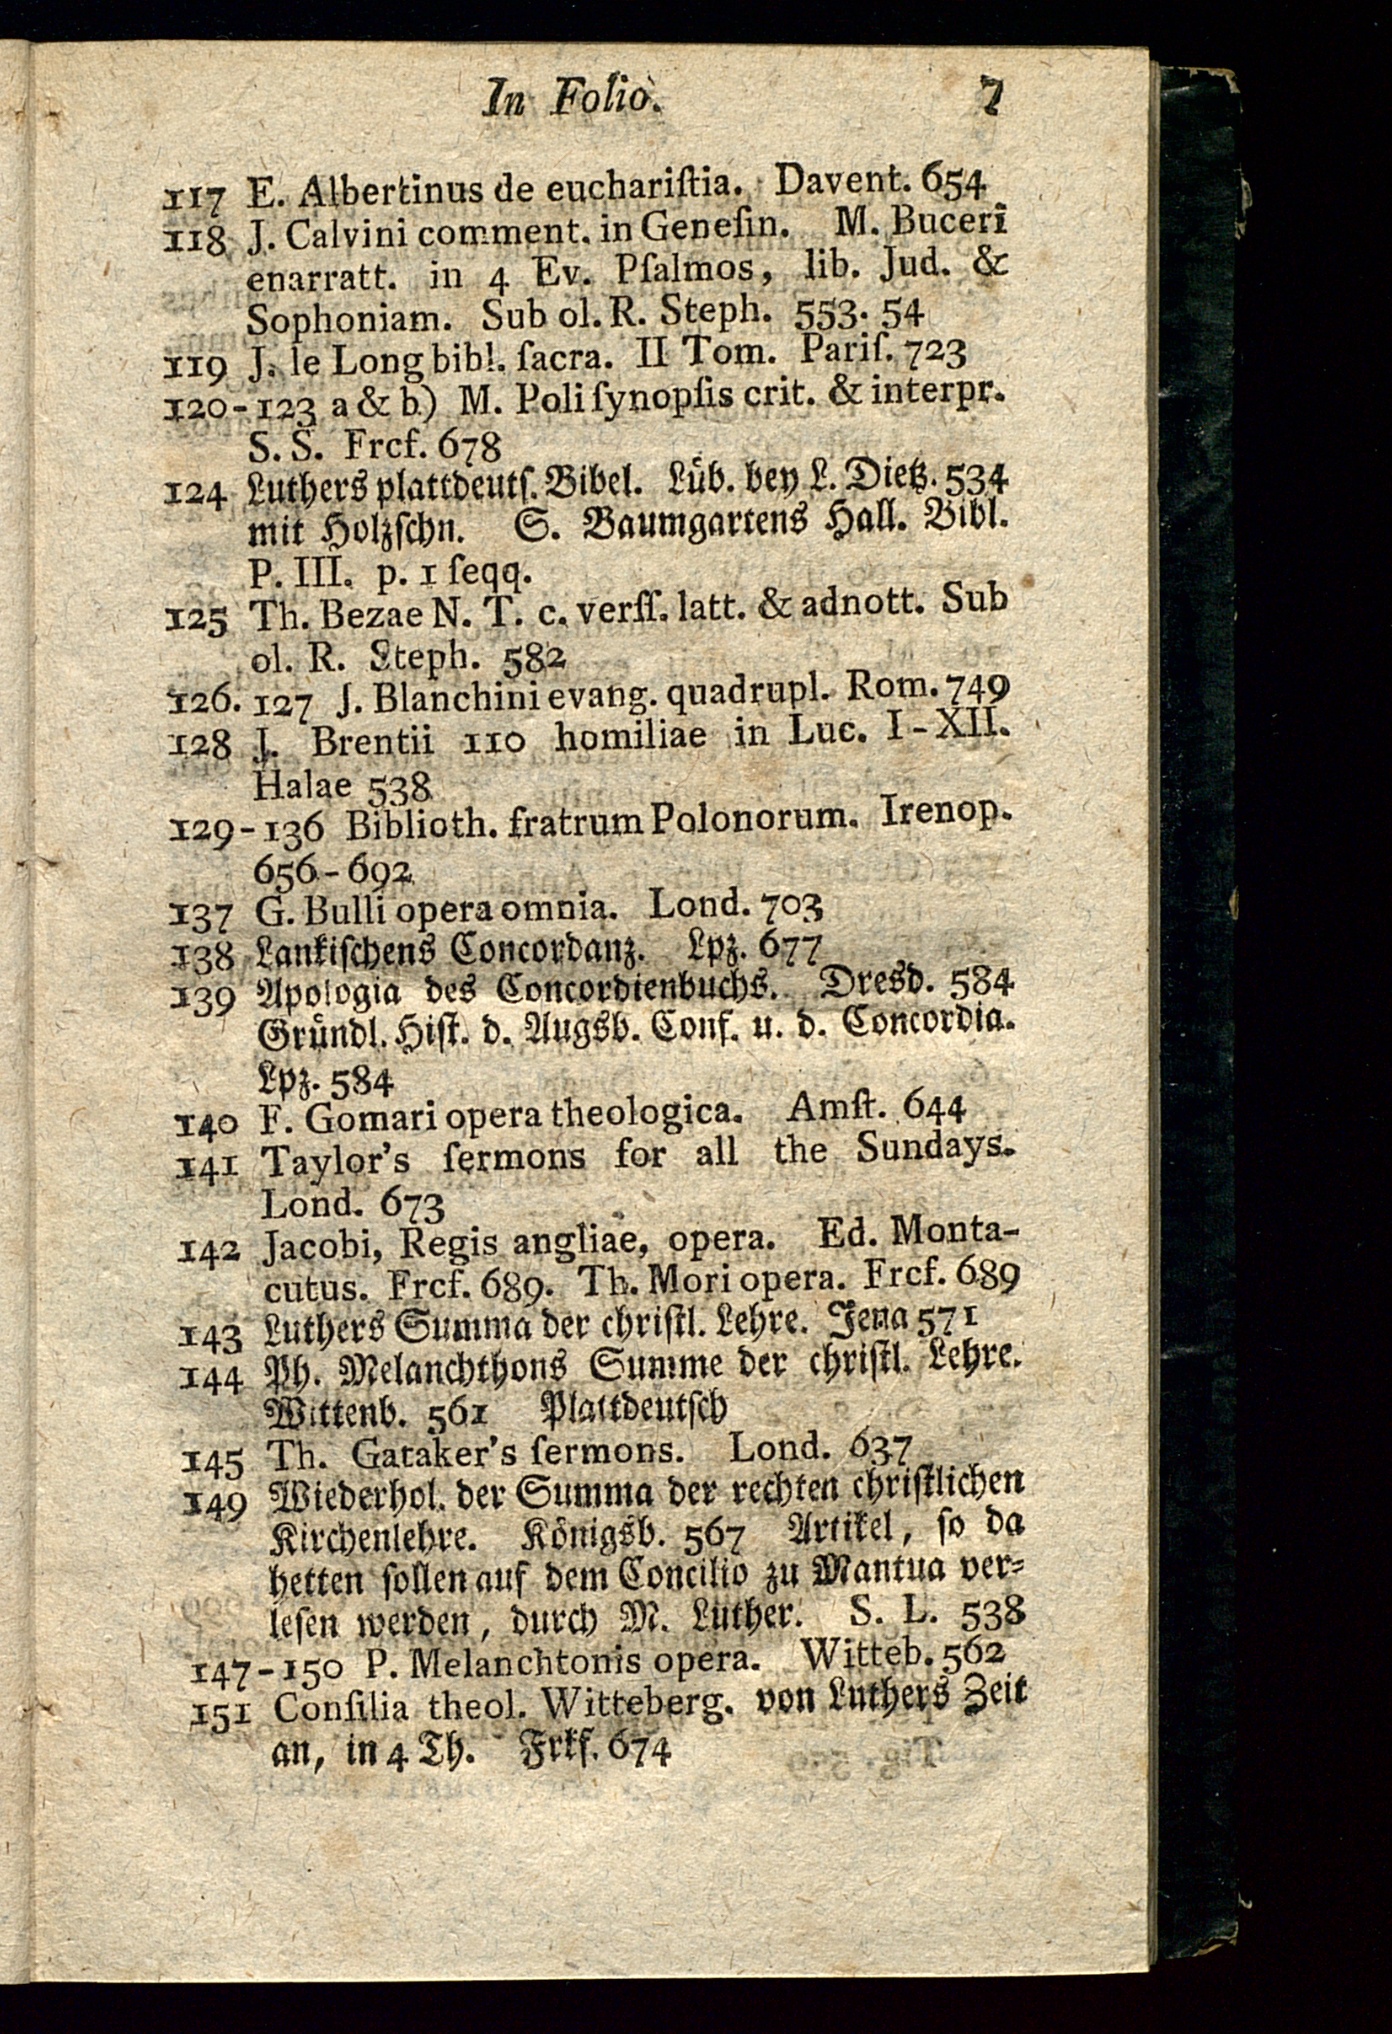 In Folio. 7
117 E. Albertinus de euchariſtia. Davent. 654
118 J. Calvini comment. in Geneſin. M. Buceri
enarratt. in 4 Ev. Pſalmos, lib. Jud. &
Sophoniam. Sub ol. R. Steph. 553. 54
119 J. le Long bibl. ſacra. II Tom. Pariſ. 723
120-123 a & b) M. Poli ſynopſis crit. & interpr.
S. S. Frcf. 678
124 Luthers plattdeutſ. Bibel. Lüb. bey L. Dietz. 534
mit Holzſchn. S. Baumgartens Hall. Bibl.
P. III. p. 1 ſeqq.
125 Th. Bezae N. T. c. verſſ. latt. & adnott. Sub
ol. R. Steph. 582
126. 127 J. Blanchini evang. quadrupl. Rom. 749
128 J. Brentii 110 homiliae in Luc. I-XII.
Halae 538
129-136 Biblioth. fratrum Polonorum. Irenop.
656-692
137 G. Bulli opera omnia. Lond. 703
138 Lankiſchens Concordanz. Lpz. 677
139 Apologia des Concordienbuchs. Dresd. 584
Gründl. Hiſt. d. Augsb. Conf. u. d. Concordia.
Lpz. 584
140 F. Gomari opera theologica. Amſt. 644
141 Taylor's ſermons for all the Sundays.
Lond. 673
142 Jacobi, Regis angliae, opera. Ed. Monta-
cutus. Frcf. 689. Th. Mori opera. Frcf. 689
143 Luthers Summa der chriſtl. Lehre. Jena 571
144 Ph. Melanchthons Summe der chriſtl. Lehre.
Wittenb. 561 Plattdeutſch
145 Th. Gataker's ſermons. Lond. 637
149 Wiederhol. der Summa der rechten chriſtlichen
Kirchenlehre. Königsb. 567 Artikel, ſo da
hetten ſollen auf dem Concilio zu Mantua ver-
leſen werden, durch M. Luther. S. L. 538
147-150 P. Melanchtonis opera. Witteb. 562
151 Conſilia theol. Witteberg. von Luthers Zeit
an, in 4 Th. Frkf. 674